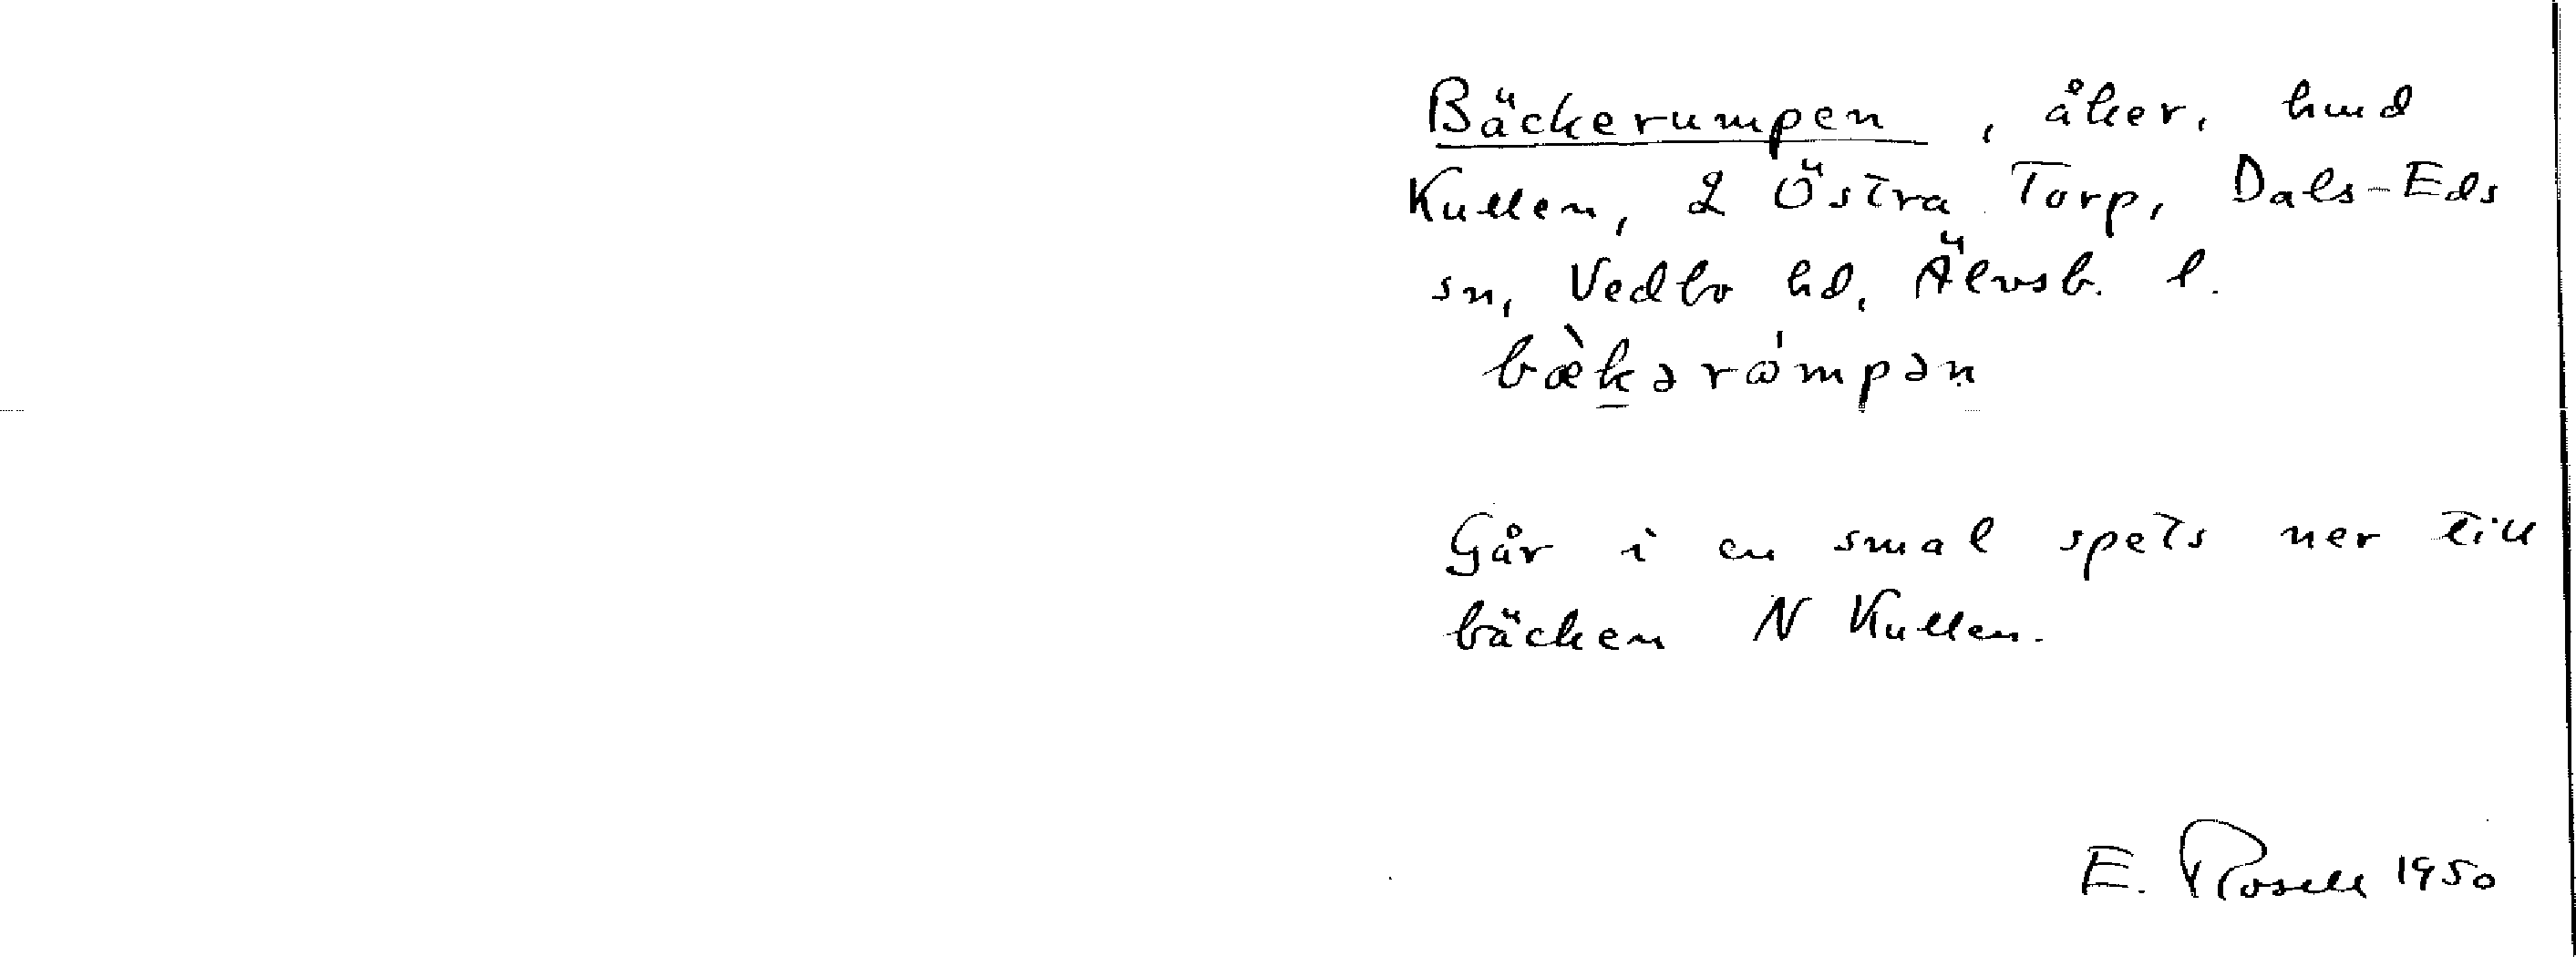 Bäckerumpen, åker, hmd
Kullen, 2 Östra Torp, Dals-Eds
sn, Vedbo hd, Älvsb. l.
bæ̀k̠ərὼmpən̥
Går i en smal spets ner till
bäcken N Kullen.
E. Rosell 1950